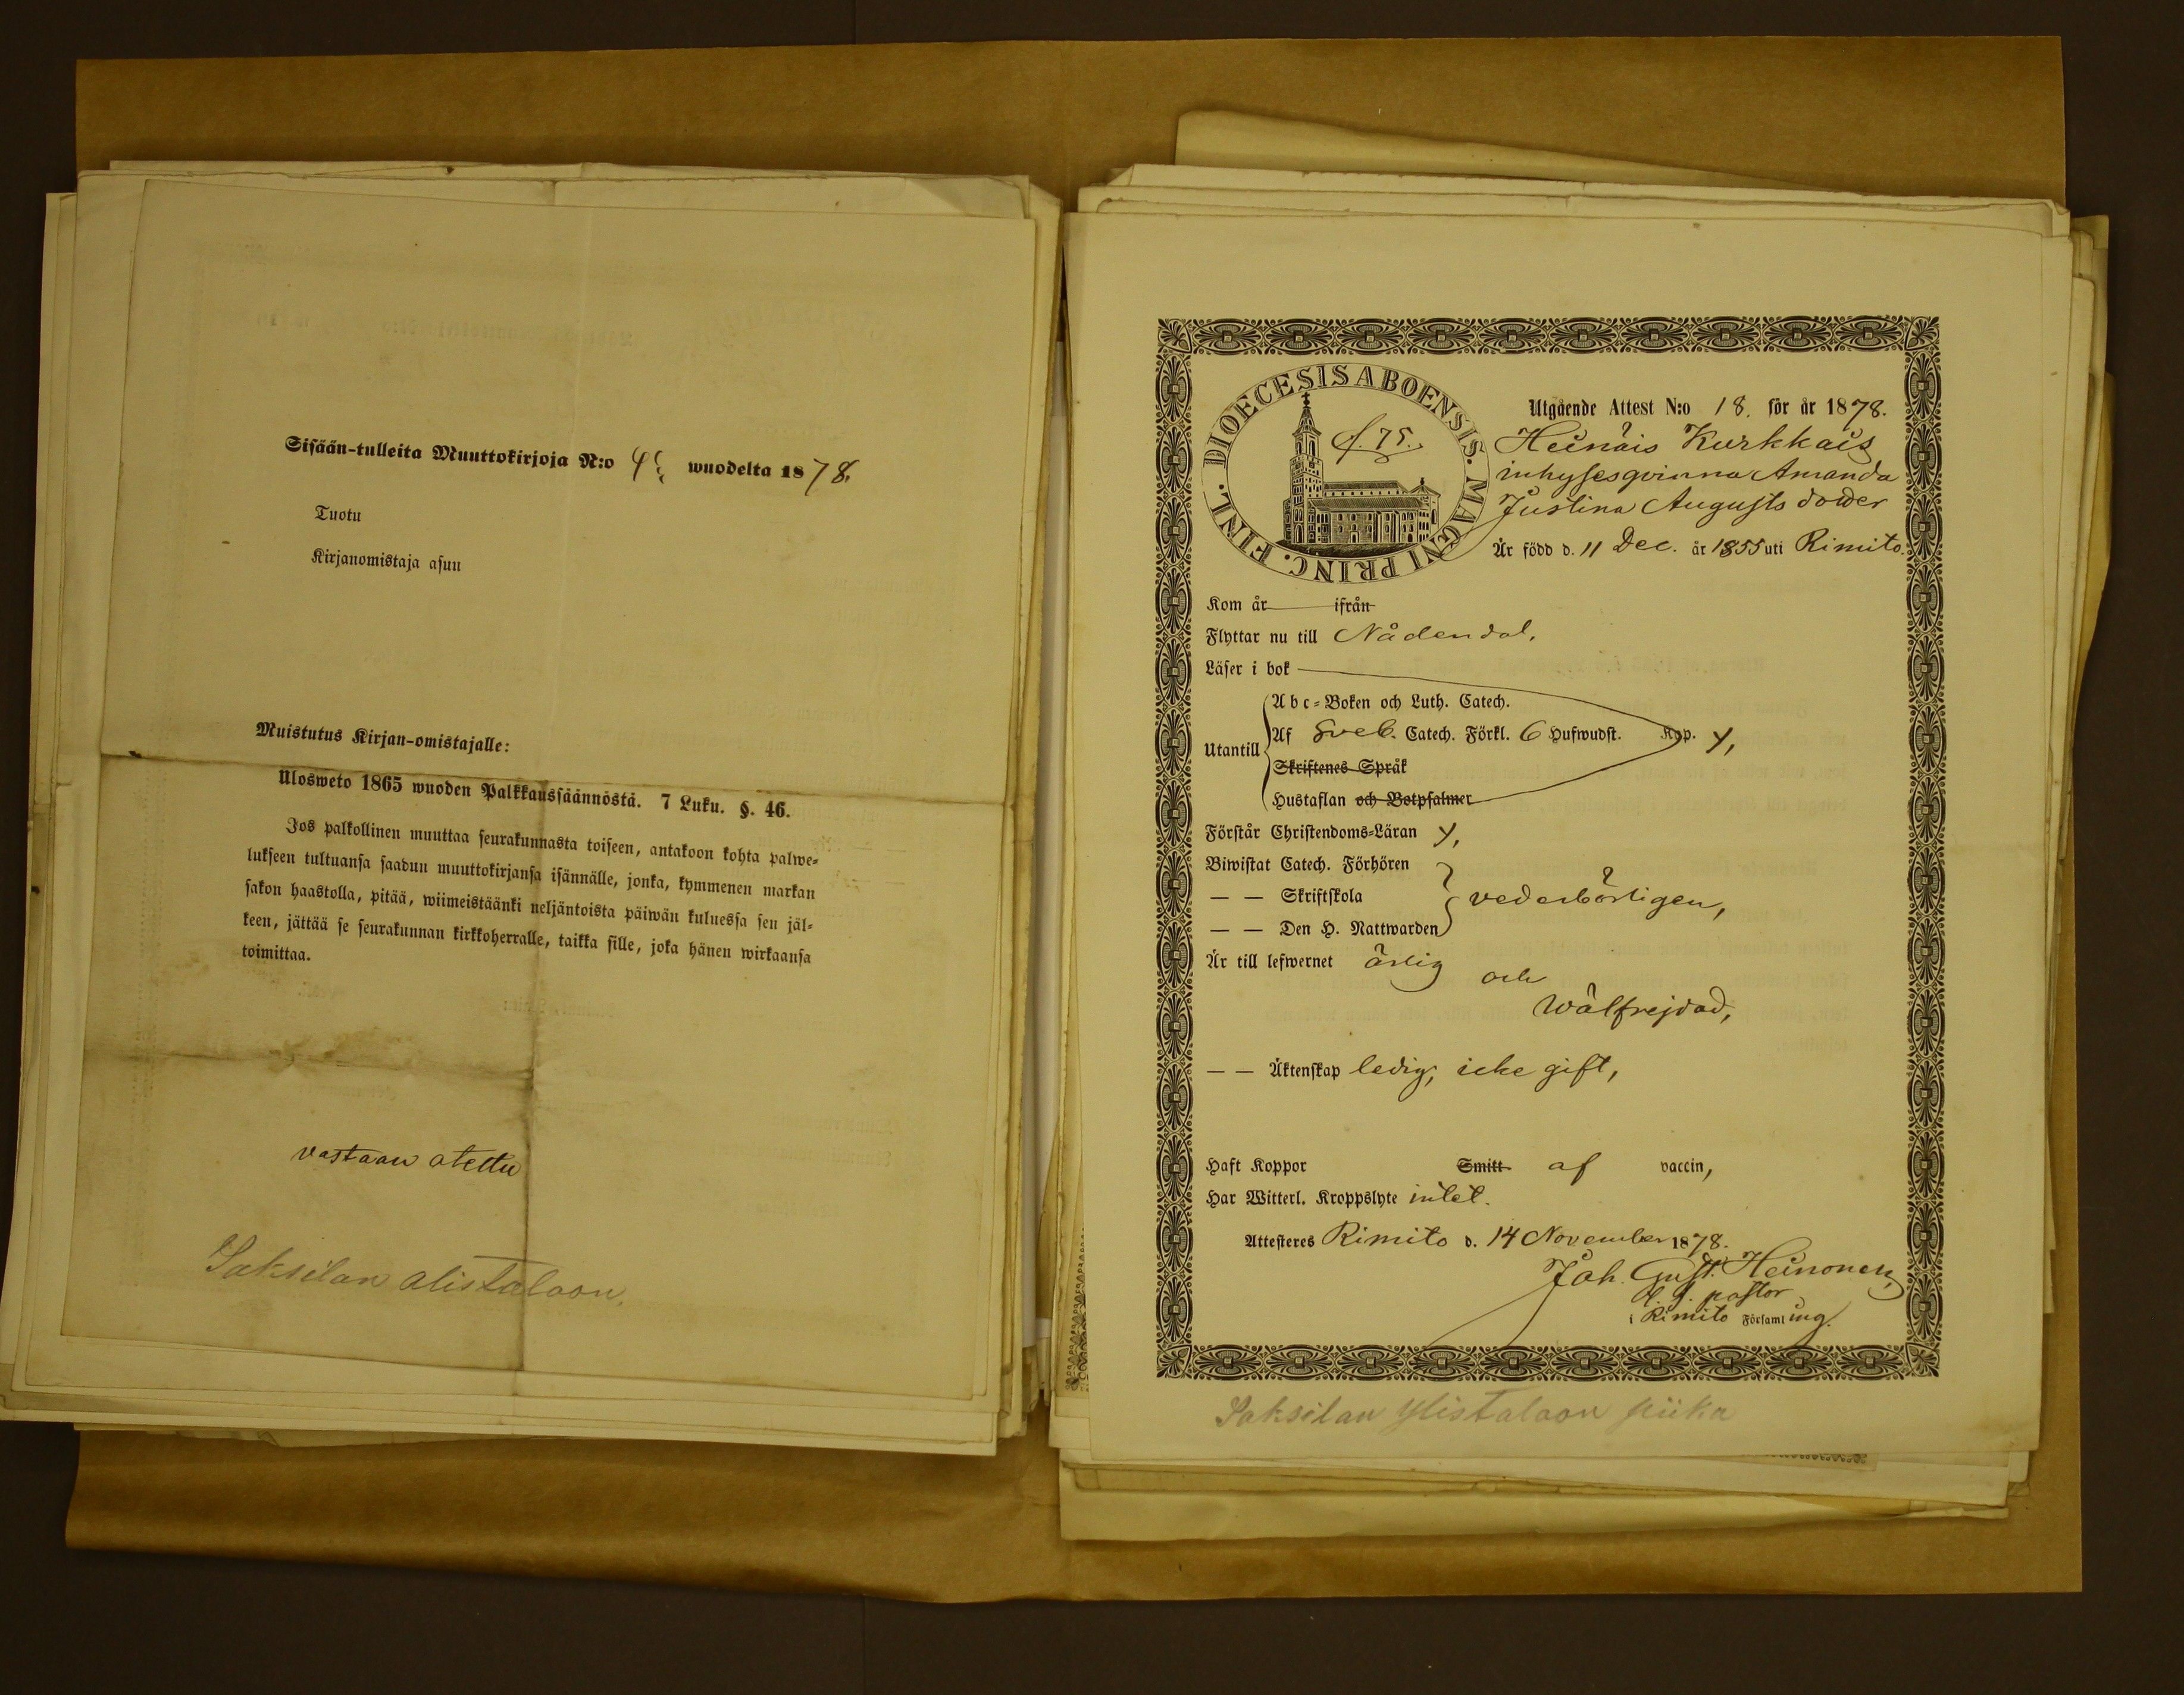 Sisään-tulleita Muuttokirjoja N:o wuodelta 1878.
Tuotu
Kirjanomistaja asuu
Muistutus Kirjan-omistajalle:
Ulosweto 1865 wuoden Palkkaussäännöstä. 7 Luku. §. 46.
Jos palkollinen muuttaa seurakunnasta toiseen, antakoon kohta palwe-
lukseen tultuansa saadun muuttokirjansa isännälle, jonka, kymmenen markan
sakon haastolla, pitää, wiimeistäänki neljäntoista päiwän kuluessa sen jäl-
keen, jättää se seurakunnan kirkkoherralle, taikka sille, joka hänen wirkaansa
toimittaa.
vastaan otettu
Saksilan alistaloon.
DIOECESIS ABOENSIS. MAGNI PRINC. FINL.
f. 75.
Utgående Attest N:o 18. för år 1878.
Heinäis Kurkkais
inhysesqvinna Amanda
Justina Augusts dotter
Är född d. 11 Dec. år 1855 uti Rimito.
Kom år ifrån
Flyttar nu till Nådendal.
Läser i bok
Utantill
Abc-Boken och Luth. Catech.
Af Sveb. Catech. Förkl. 6 Hufwudst. Kap. y,
Skriftenes Språk
Hustaflan och Botpsalmer
Förstår Christendoms-Läran y,
Biwistat Catech. Förhören
— — Skriftskola vederbörligen,
— — Den H. Nattwarden
Är till lefwernet ärlig och
wälfrejdad,
— — Äktenskap ledig, icke gift,
Haft Koppor Smitt af vaccin,
Har Witterl. Kroppslyte intet.
Attesteras Rimito d. 14 November 1878.
Joh. Gust. Heinonen,
pastor
i Rimito Församling.
Saksilan Ylistaloon piika